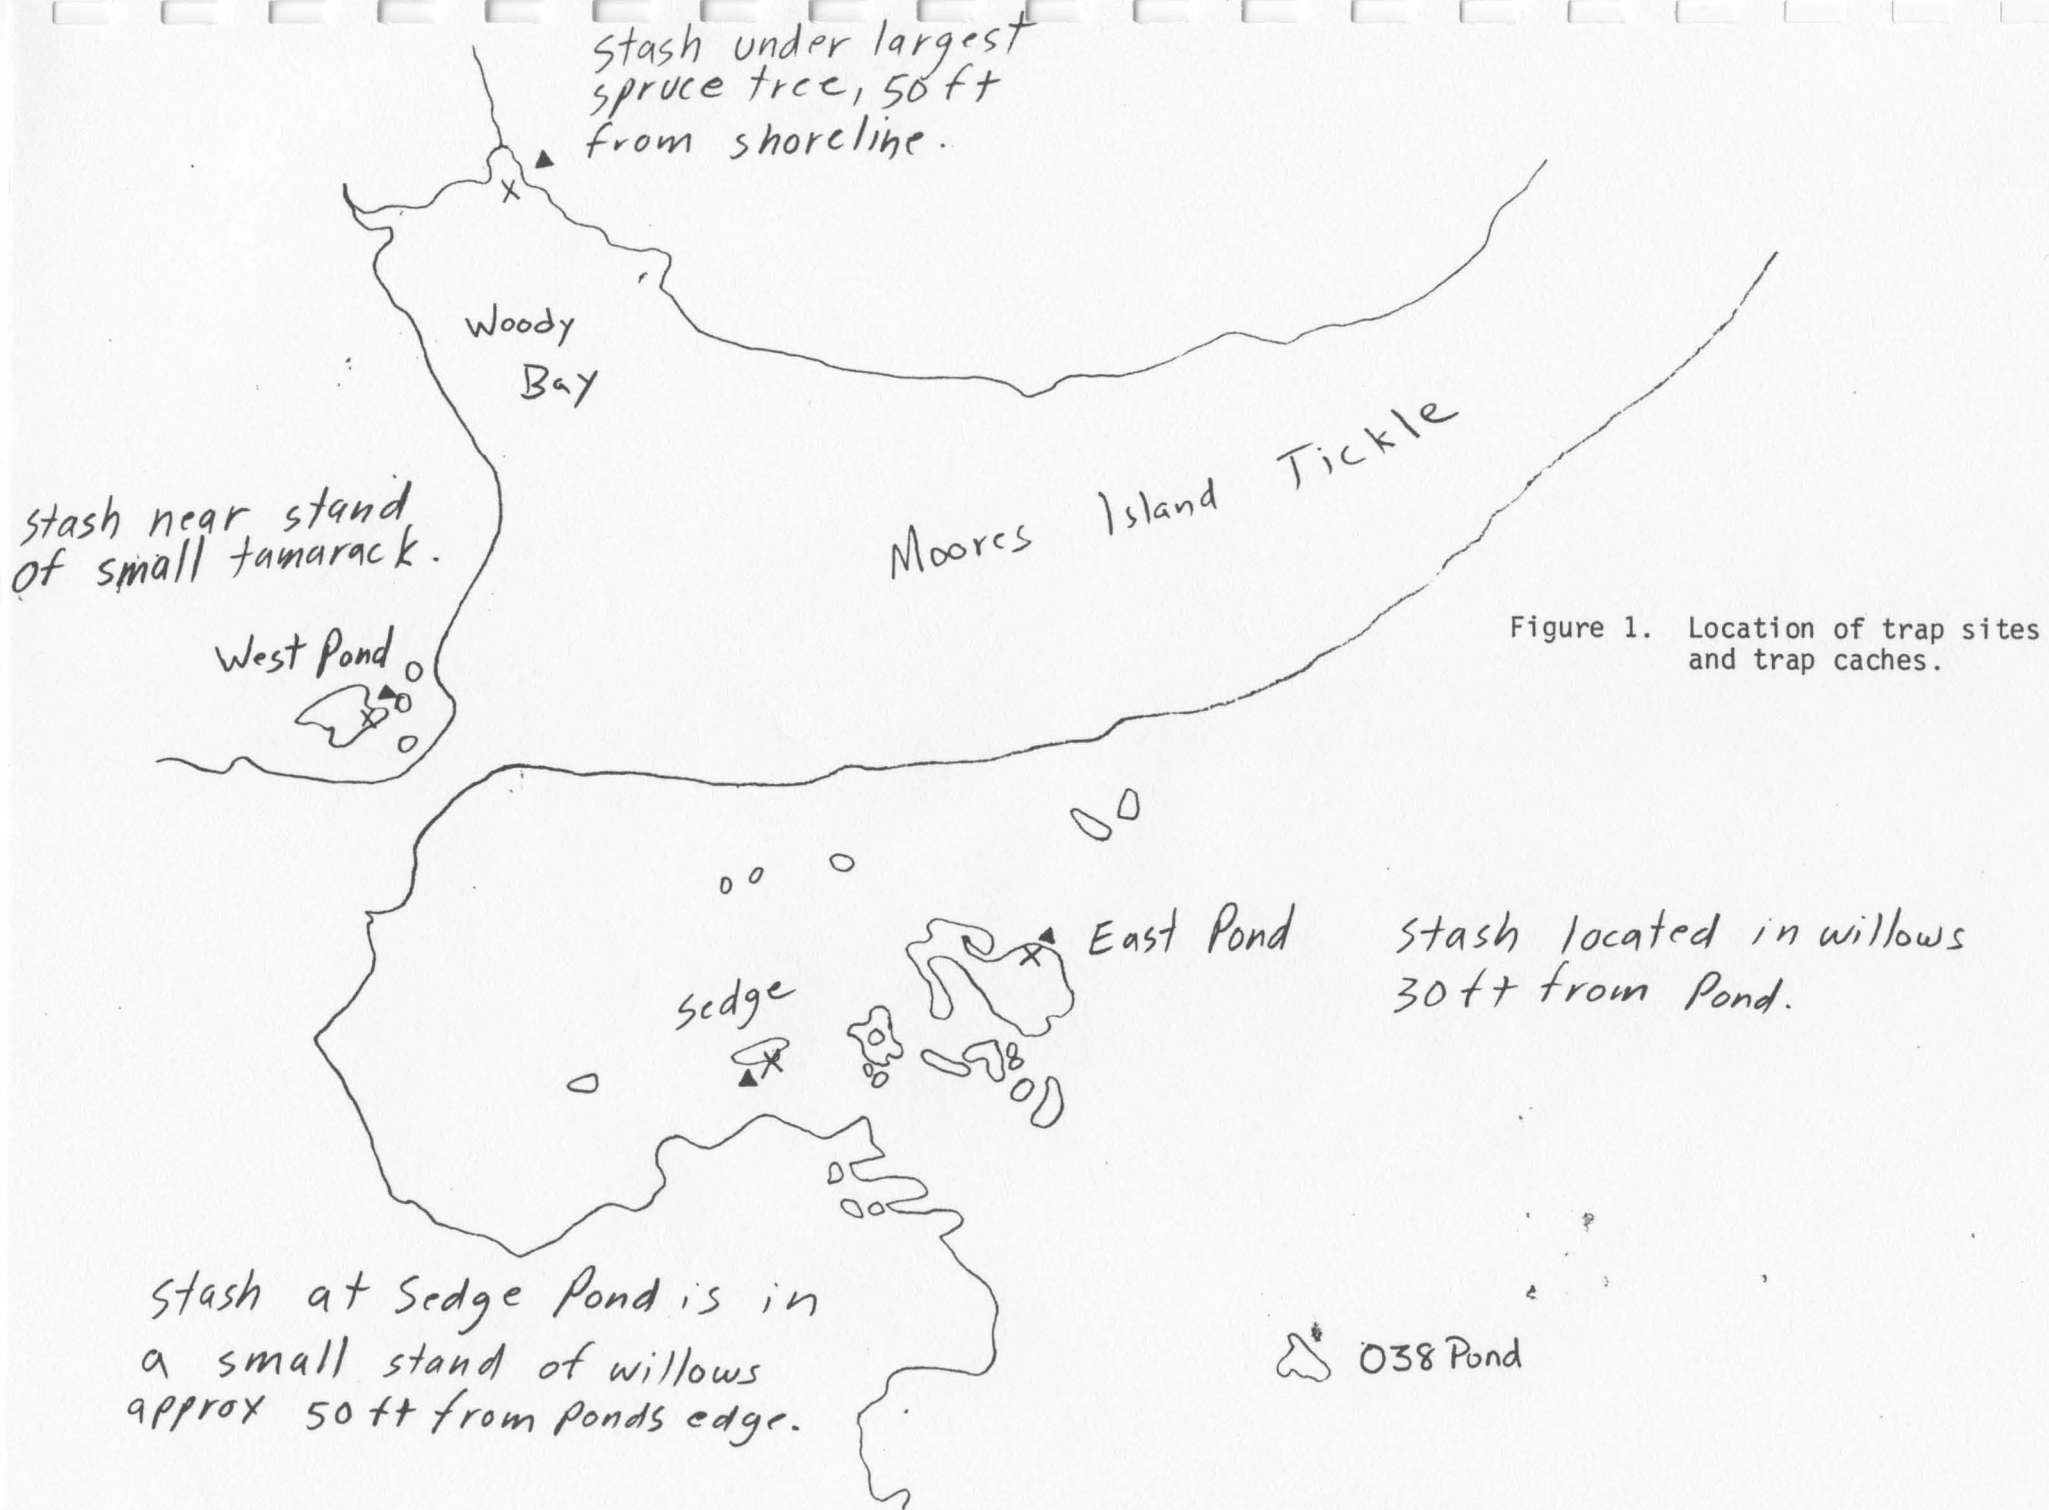 stash under largest
spruce tree, 50 ft
from shoreline.
Woody
Bay
Moores Island Tickle
stash near stand
of small tamarack.
West Pond
Figure 1. Location of trap sites
and trap caches.
East Pond
stash located in willows
30 ft from Pond.
sedge
stash at Sedge Pond is in
a small stand of willows
approx 50 ft from Ponds edge.
038 Pond